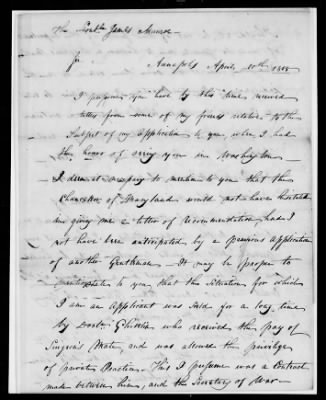 The Honble James Monroe
Sir
Annapolis April 10th 1818
I presume you have by this time received
letters from some of my friends relative to the
Subject of my application to you when I had
the honor of seeing you in Washington —
I deem it necessary to mention to you that the
Chancellor of Maryland would not have hesitated
in giving me a letter of recommendation, had I
not have been anticipated by a previous application
of another Gentleman. It may be proper to
participate to you that the Situation for which
I am an applicant was held for a long time
by Doctr Ghiselin who received the pay of
Surgeon's Mate, and was allowed the privilege
of private Practice. This I presume was a Contract
made between him, and the Secretary of War —